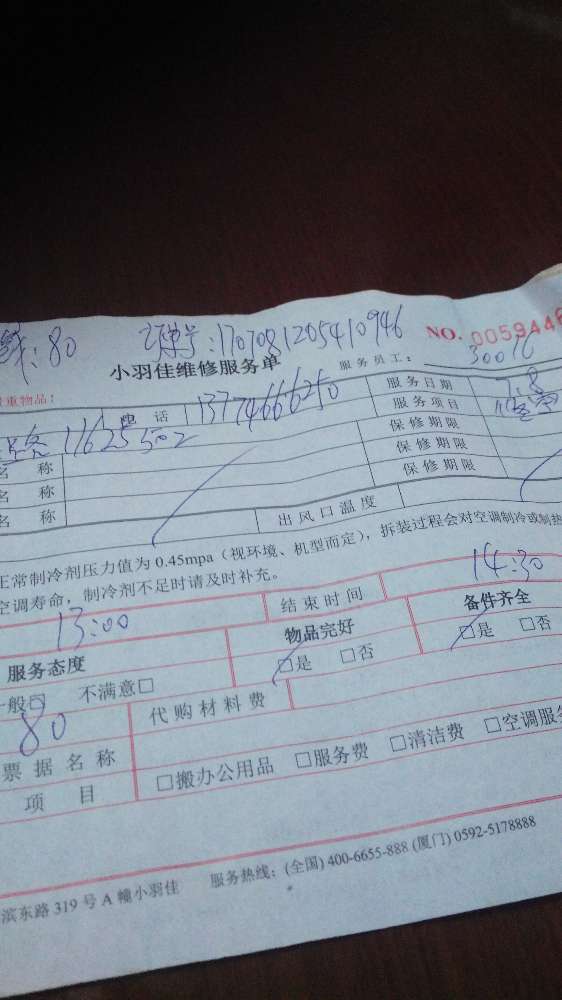 :80 订单号:1707081205410946 NO. 0059446
小羽佳维修服务单 服务员工: 30016
重物品:
电话 13774666250 服务日期 7.8
11625502 服务项目
名称 保修期限
名称 保修期限
名称 保修期限
出风口温度
正常制冷剂压力值为 0.45mpa（视环境、机型而定），拆装过程会对空调制冷或制热
空调寿命，制冷剂不足时请及时补充。
13:00 结束时间 14:30
服务态度 物品完好 备件齐全
一般□ 不满意□ □是 □否 □是 □否
80 代购材料费
票据名称
项目 □搬办公用品 □服务费 □清洁费 □空调服
滨东路 319 号 A 幢小羽佳 服务热线: (全国) 400-6655-888 (厦门) 0592-5178888